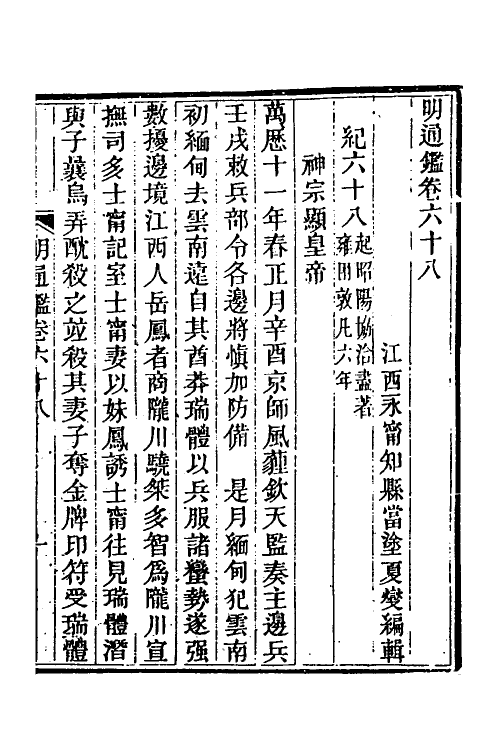 明通鑑卷六十八
江西永甯知縣當塗夏燮編輯
紀六十八起昭陽協洽盡著
雍困敦凡六年
神宗顯皇帝
萬歷十一年春正月辛酉京師風霾欽天監奏主邊兵
壬戌敕兵部令各邊將愼加防備　是月緬甸犯雲南
初緬甸去雲南遠自其酋莽瑞體以兵服諸蠻勢遂强
數擾邊境江西人岳鳳者商隴川驍桀多智爲隴川宣
撫司多士甯記室士甯妻以妹鳳誘士甯往見瑞體潛
與子曩烏弄酖殺之竝殺其妻子奪金牌印符受瑞體
明通鑑卷六十八
一